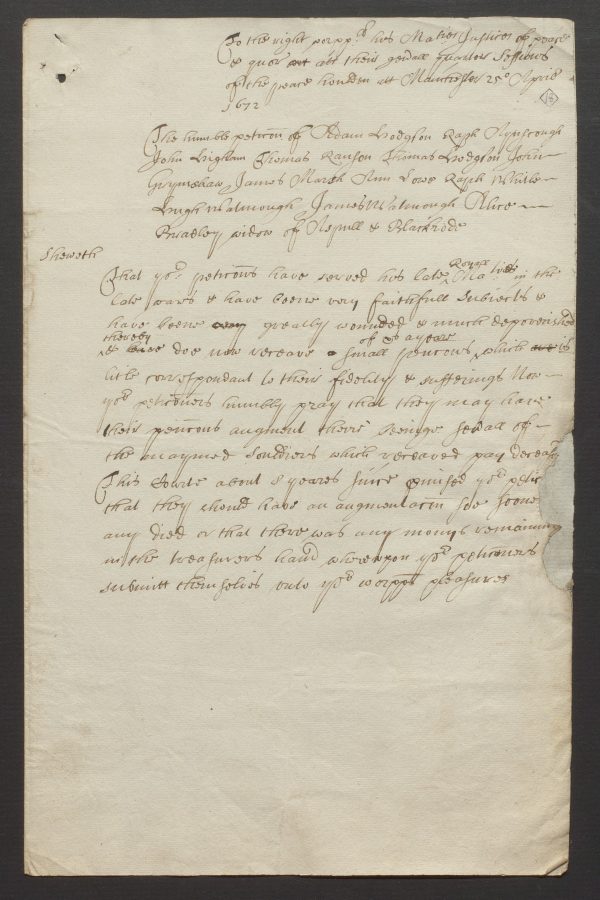 To the right worpp:ll his Maties Justices of peace
& quor att their genall quarter Sessions
of the peace houlden att Manchester 25º Aprill
1672
The humble peticon of Adam Hodgson Raph Aynscough
John Higham Thomas Ranson Thomas Hodgson John
Grymshaw James Marsh Ann Lowe Raph White
Hugh Walmough James Walmough Alice
Bradley widow of Aspull & Blackrode
Sheweth
That yor: peticonrs have served his late Royall Maties in the
late warrs & have beene very faithfull Subiects & 
have beene greatly wounded & much depoverished
& thereby doe now receave a small pencons of a yeare which is
litle correspondant to their fidelity & sufferings Now
yor peticoners humbly pray that they may have
their pencons augment theire beeinge sevrall of
the maymed Souldiers which receaved pay deceas
This Courte about 8 yeares since pmised yor petic
that they should have an augmentacon soe soone
any died or that there was any monys remaining
in the treasurers hand whereupon yor peticoners
submitt themselves unto yor worpps pleasures